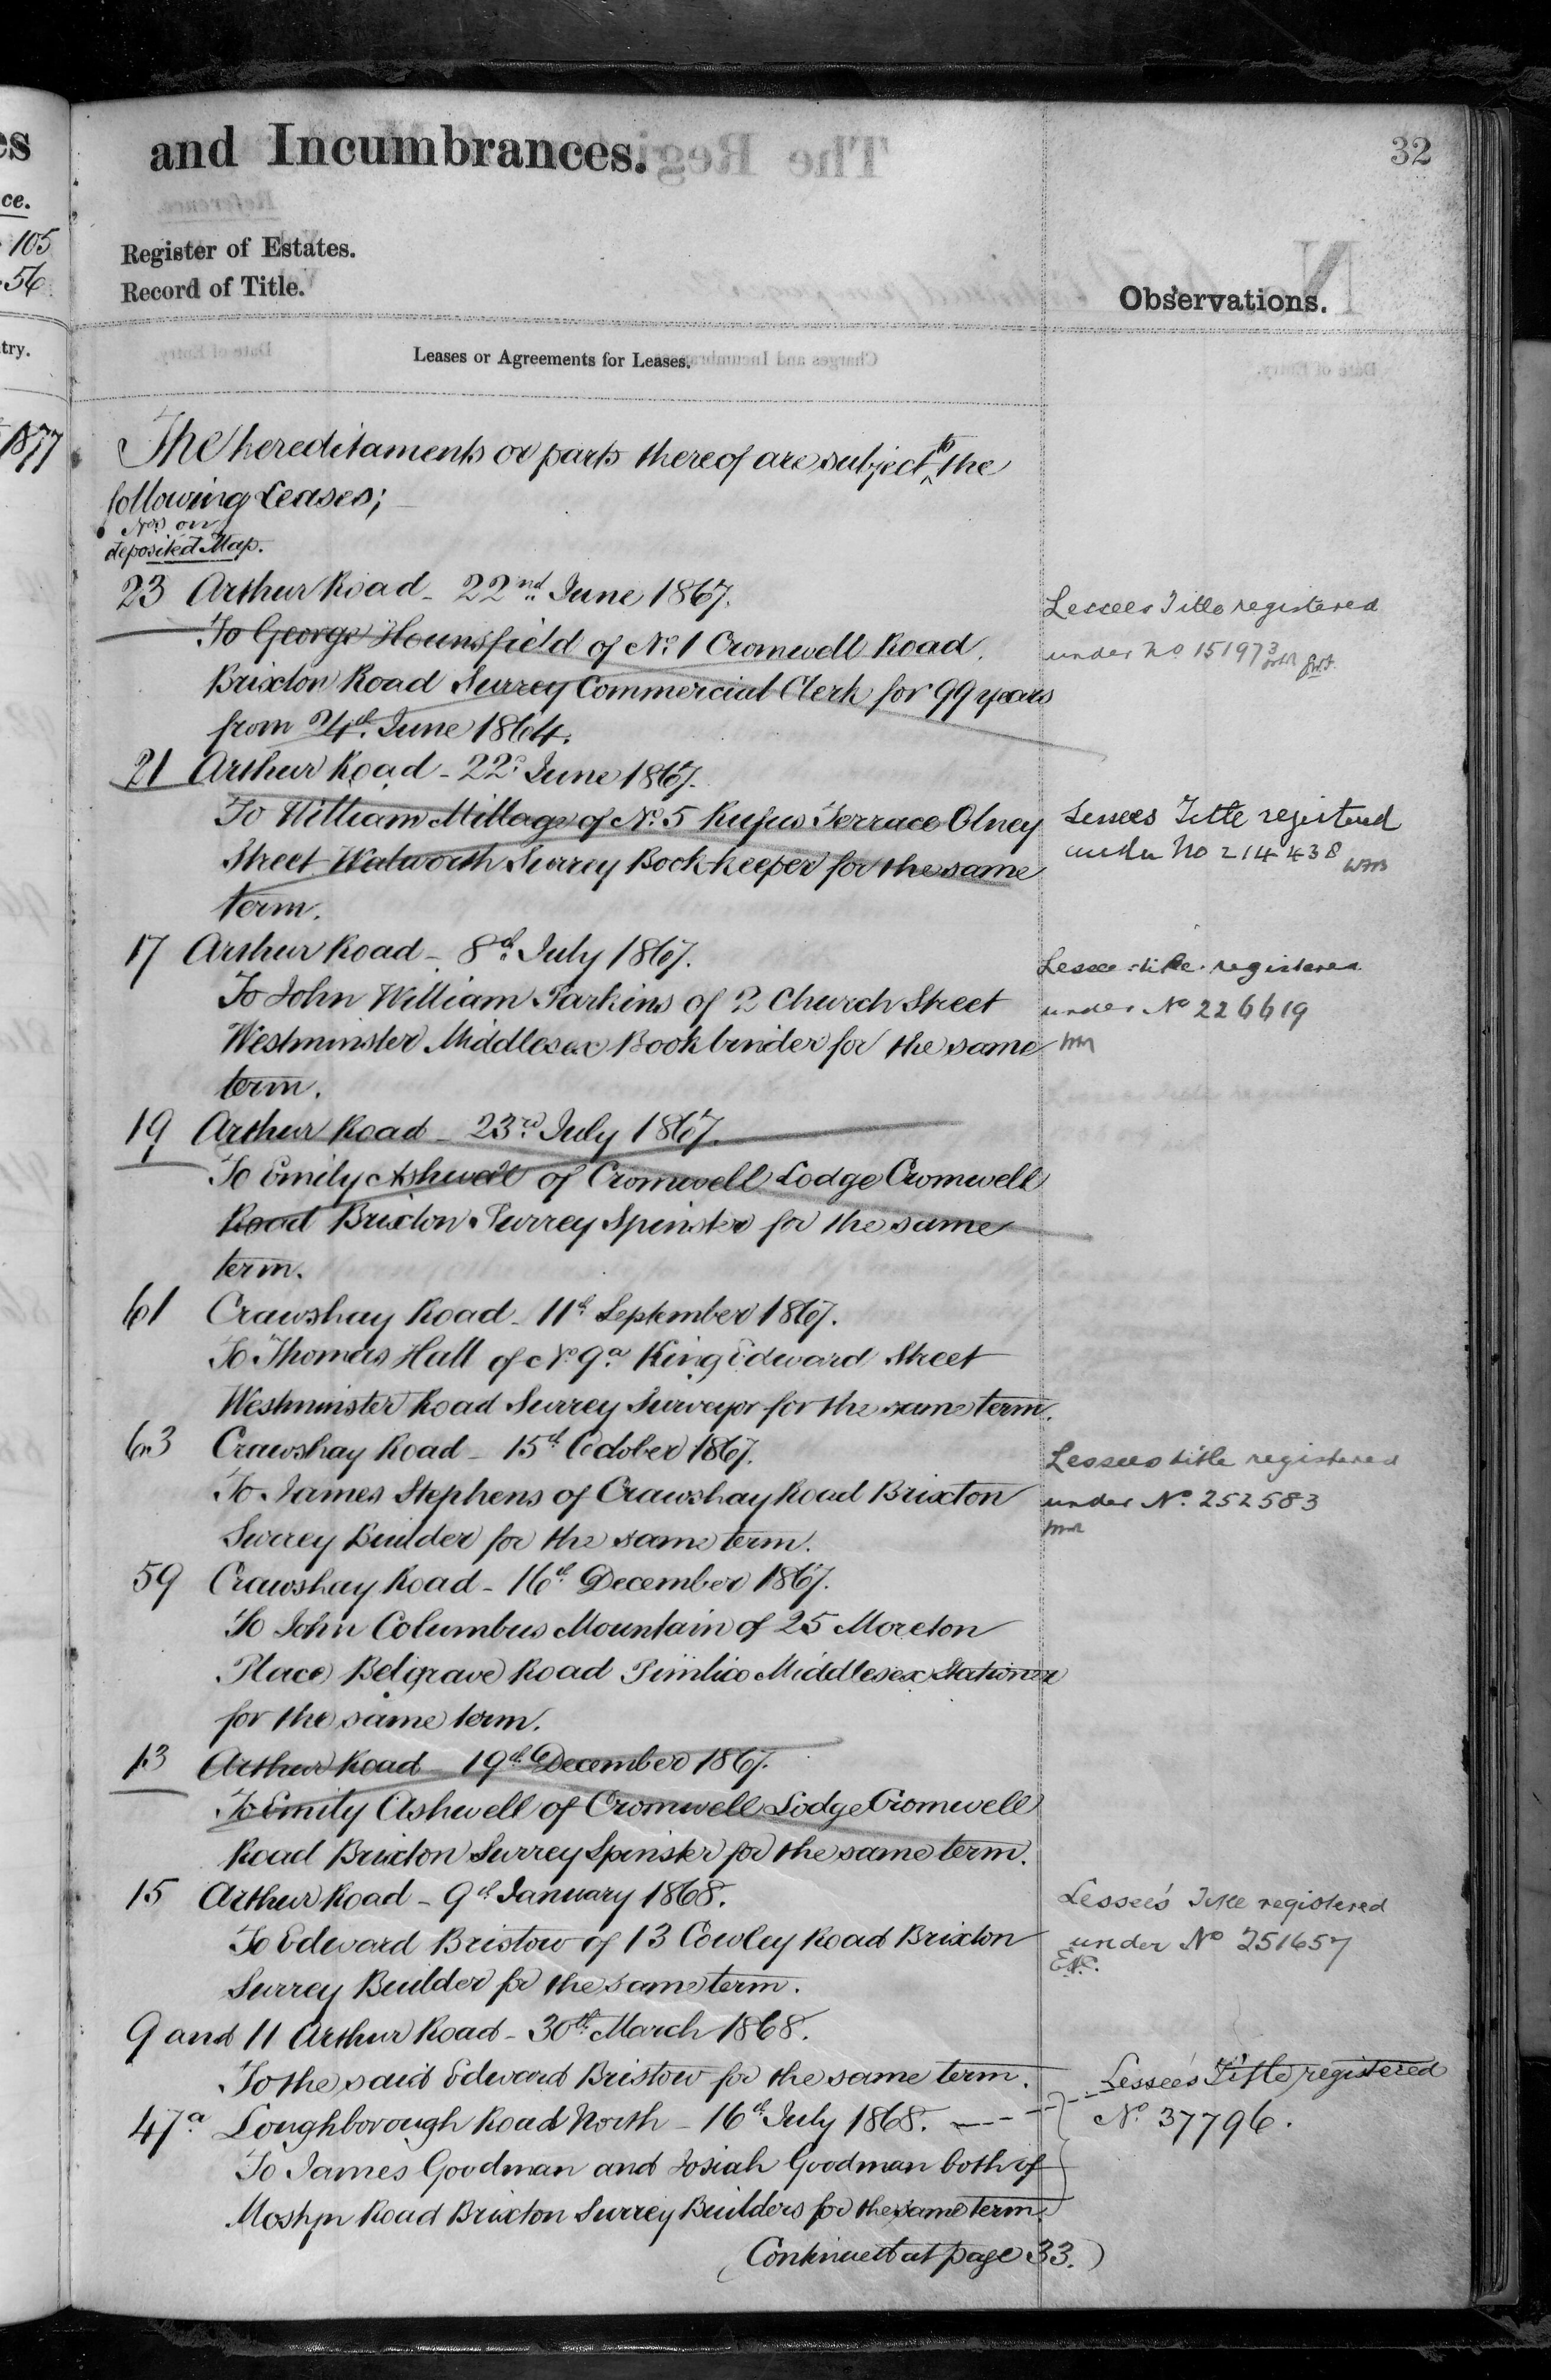 es
ce.
105
56
try.
1877
and Incumbrances.
32
Register of Estates.
Record of Title.
Observations.
Leases or Agreements for Leases.
The hereditaments or parts thereof are subject to the
following Leases;
Nos. on
deposited Map.
23 Arthur Road - 22nd June 1867.
To George Hounsfield of No. 1 Cromwell Road
Brixton Road Surrey Commercial Clerk for 99 years
from 24th June 1864.
Lessees Title registered
under No 151973
21 Arthur Road - 22d June 1867.
To William Millage of No. 5 Rufus Terrace Olney
Street Walworth Surrey Book-keeper for the same
term.
Lessees Title registered
under No 214438
17 Arthur Road - 8th July 1867.
To John William Parkins of 2 Church Street
Westminster Middlesex Bookbinder for the same
term.
Lessee title registered
under No 226619
19 Arthur Road - 23rd July 1867.
To Emily Ashwell of Cromwell Lodge Cromwell
Road Brixton Surrey Spinster for the same
term.
61 Crawshay Road - 11th September 1867.
To Thomas Hall of No. 9a King Edward Street
Westminster Road Surrey Surveyor for the same term.
63 Crawshay Road - 15th October 1867.
To James Stephens of Crawshay Road Brixton
Surrey Builder for the same term.
Lessees title registered
under No. 252583
59 Crawshay Road - 16th December 1867.
To John Columbus Mountain of 25 Moreton
Place Belgrave Road Pimlico Middlesex Stationer
for the same term.
13 Arthur Road - 19th December 1867.
To Emily Ashwell of Cromwell Lodge Cromwell
Road Brixton Surrey Spinster for the same term.
15 Arthur Road - 9th January 1868.
To Edward Bristow of 13 Cowley Road Brixton
Surrey Builder for the same term.
Lessee's Title registered
under No 251657
9 and 11 Arthur Road - 30th March 1868.
To the said Edward Bristow for the same term.
47a Loughborough Road North - 16th July 1868.
To James Goodman and Josiah Goodman both of
Mostyn Road Brixton Surrey Builders for the same term.
Lessee's Title registered
No. 37796.
(Continued at page 33.)